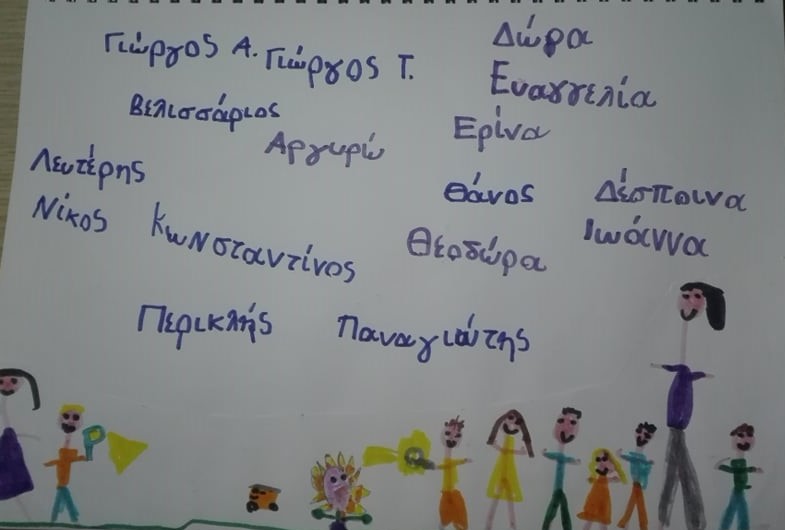 Γιώργος Α. Γιώργος Τ.
Δώρα
Ευαγγελία
Βελισσάριος
Αργυρώ
Ερίνα
Λευτέρης
Θάνος
Δέσποινα
Νίκος
Κωνσταντίνος
Θεοδώρα
Ιωάννα
Περικλής
Παναγιώτης